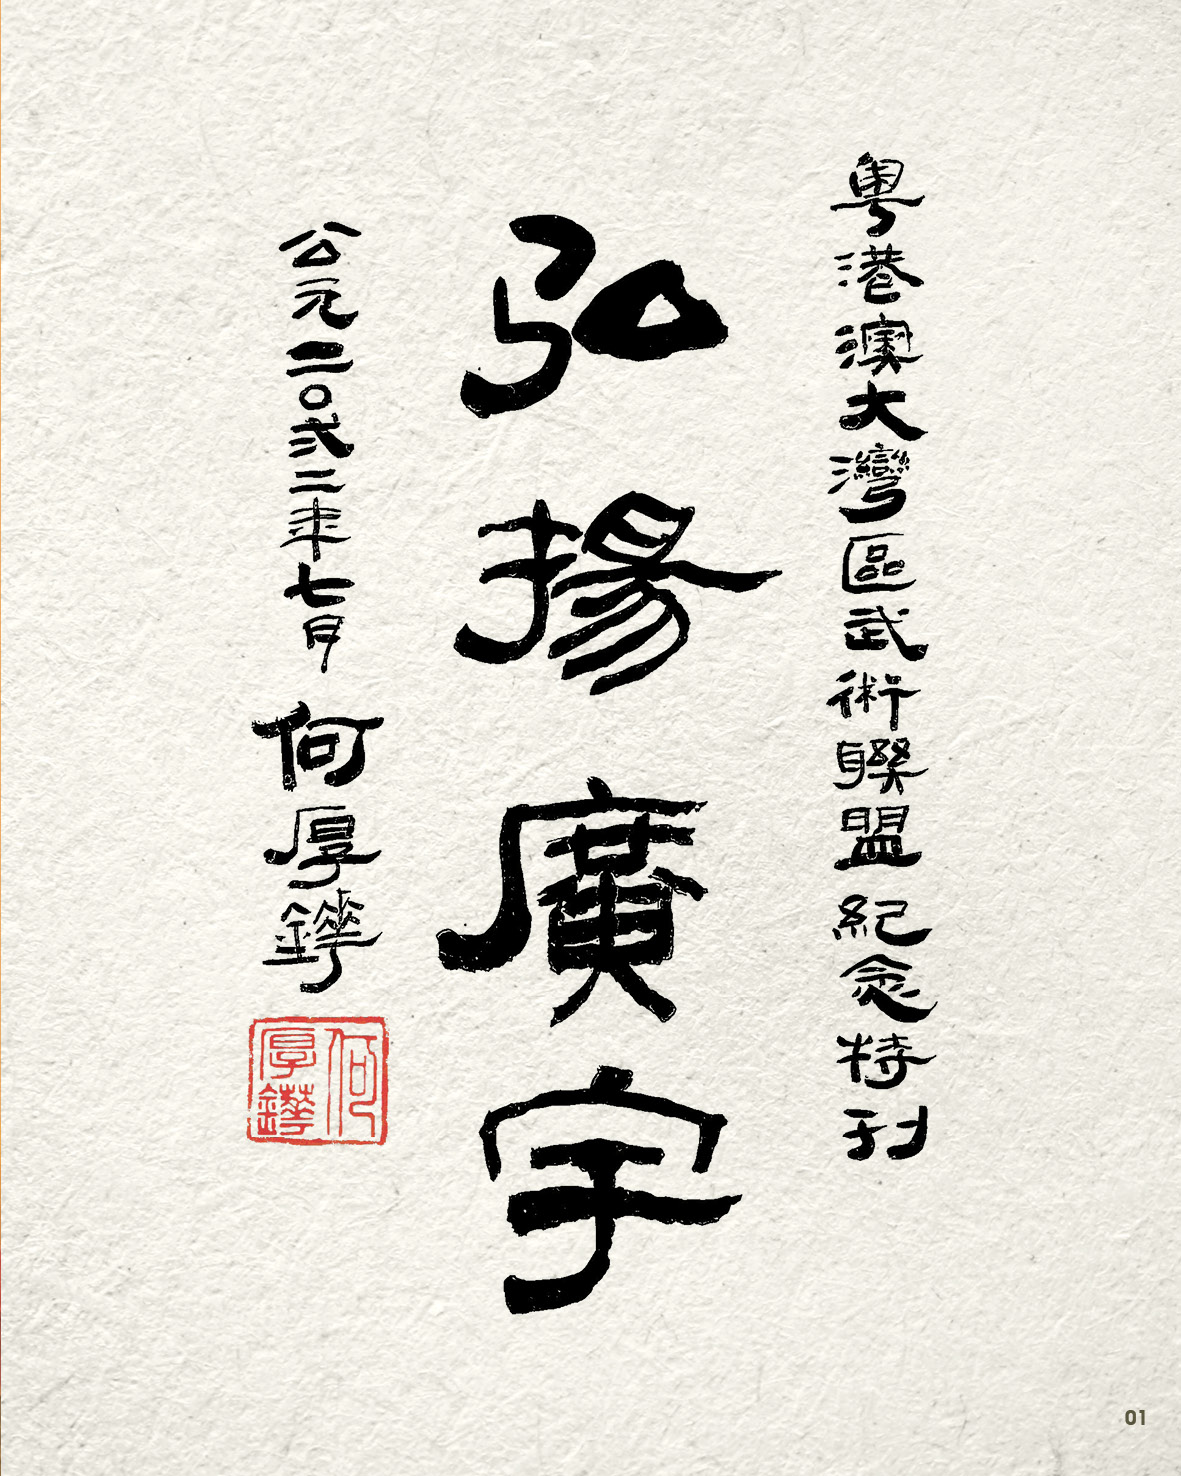 粵港澳大灣區武術聯盟紀念特刊
弘揚廣宇
公元二〇弍二年七月
何厚鏵
何厚鏵
01